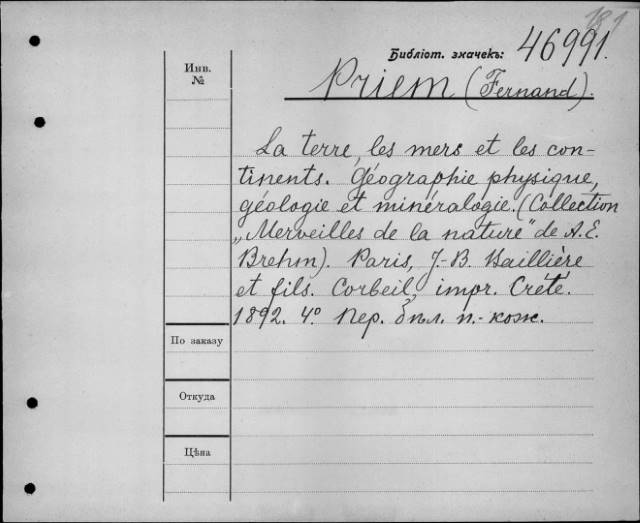 Библіот. значекъ: 46991.
Инв.
№
Priem (Fernand).
La terre, les mers et les con-
tinents. Géographie physique,
géologie et minéralogie. (Collection
„Merveilles de la nature" de A. E.
Brehm). Paris, J.-B. Baillière
et fils. Corbeil, impr. Crété.
1892. 4° Пер. бѣл. п.-кож.
По заказу
Откуда
Цѣна